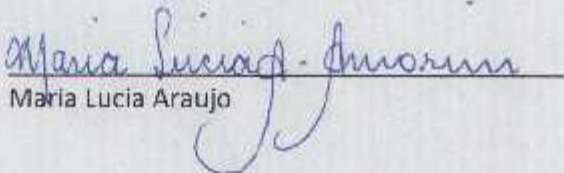 Maria Lucia A. Amorim
Maria Lucia Araujo